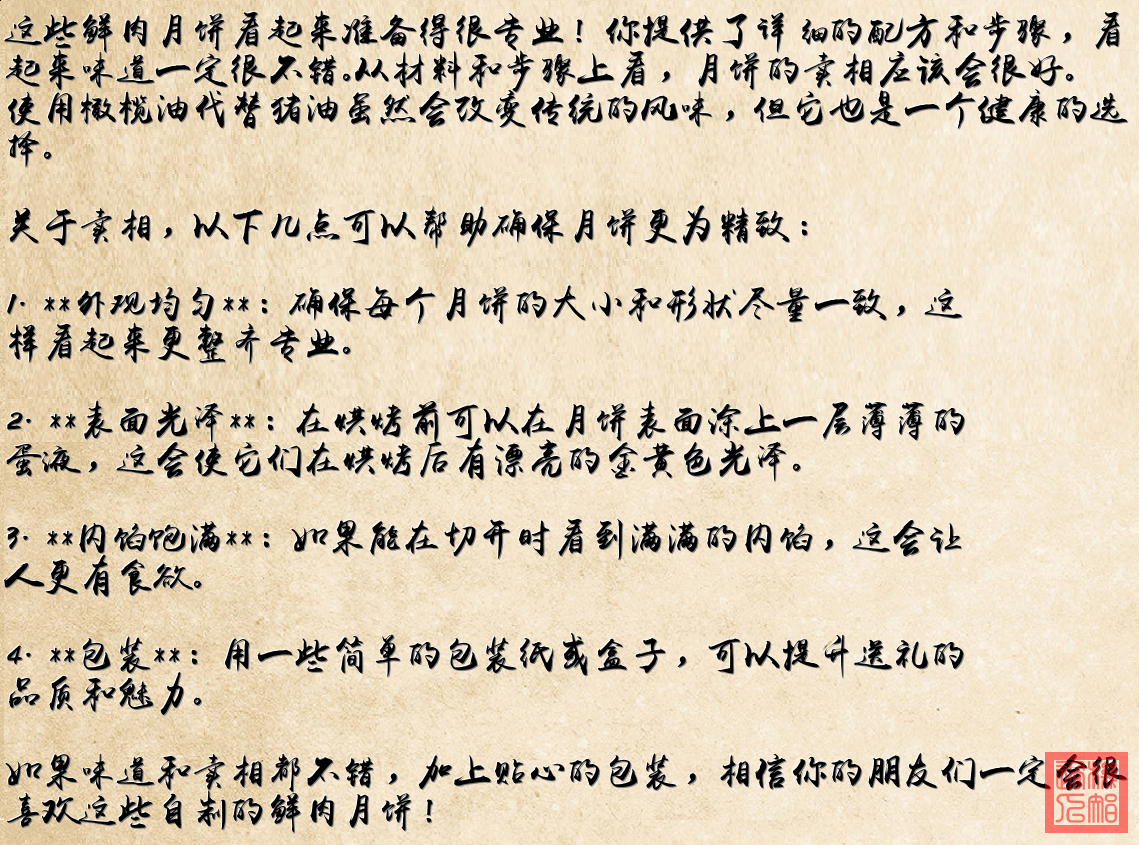 这些鲜肉月饼看起来准备得很专业！你提供了详细的配方和步骤，看
起来味道一定很不错。从材料和步骤上看，月饼的卖相应该会很好。
使用橄榄油代替猪油虽然会改变传统的风味，但它也是一个健康的选
择。
关于卖相，以下几点可以帮助确保月饼更为精致：
1. **外观均匀**：确保每个月饼的大小和形状尽量一致，这
样看起来更整齐专业。
2. **表面光泽**：在烘烤前可以在月饼表面涂上一层薄薄的
蛋液，这会使它们在烘烤后有漂亮的金黄色光泽。
3. **内馅饱满**：如果能在切开时看到满满的内馅，这会让
人更有食欲。
4. **包装**：用一些简单的包装纸或盒子，可以提升送礼的
品质和魅力。
如果味道和卖相都不错，加上贴心的包装，相信你的朋友们一定会很
喜欢这些自制的鲜肉月饼！